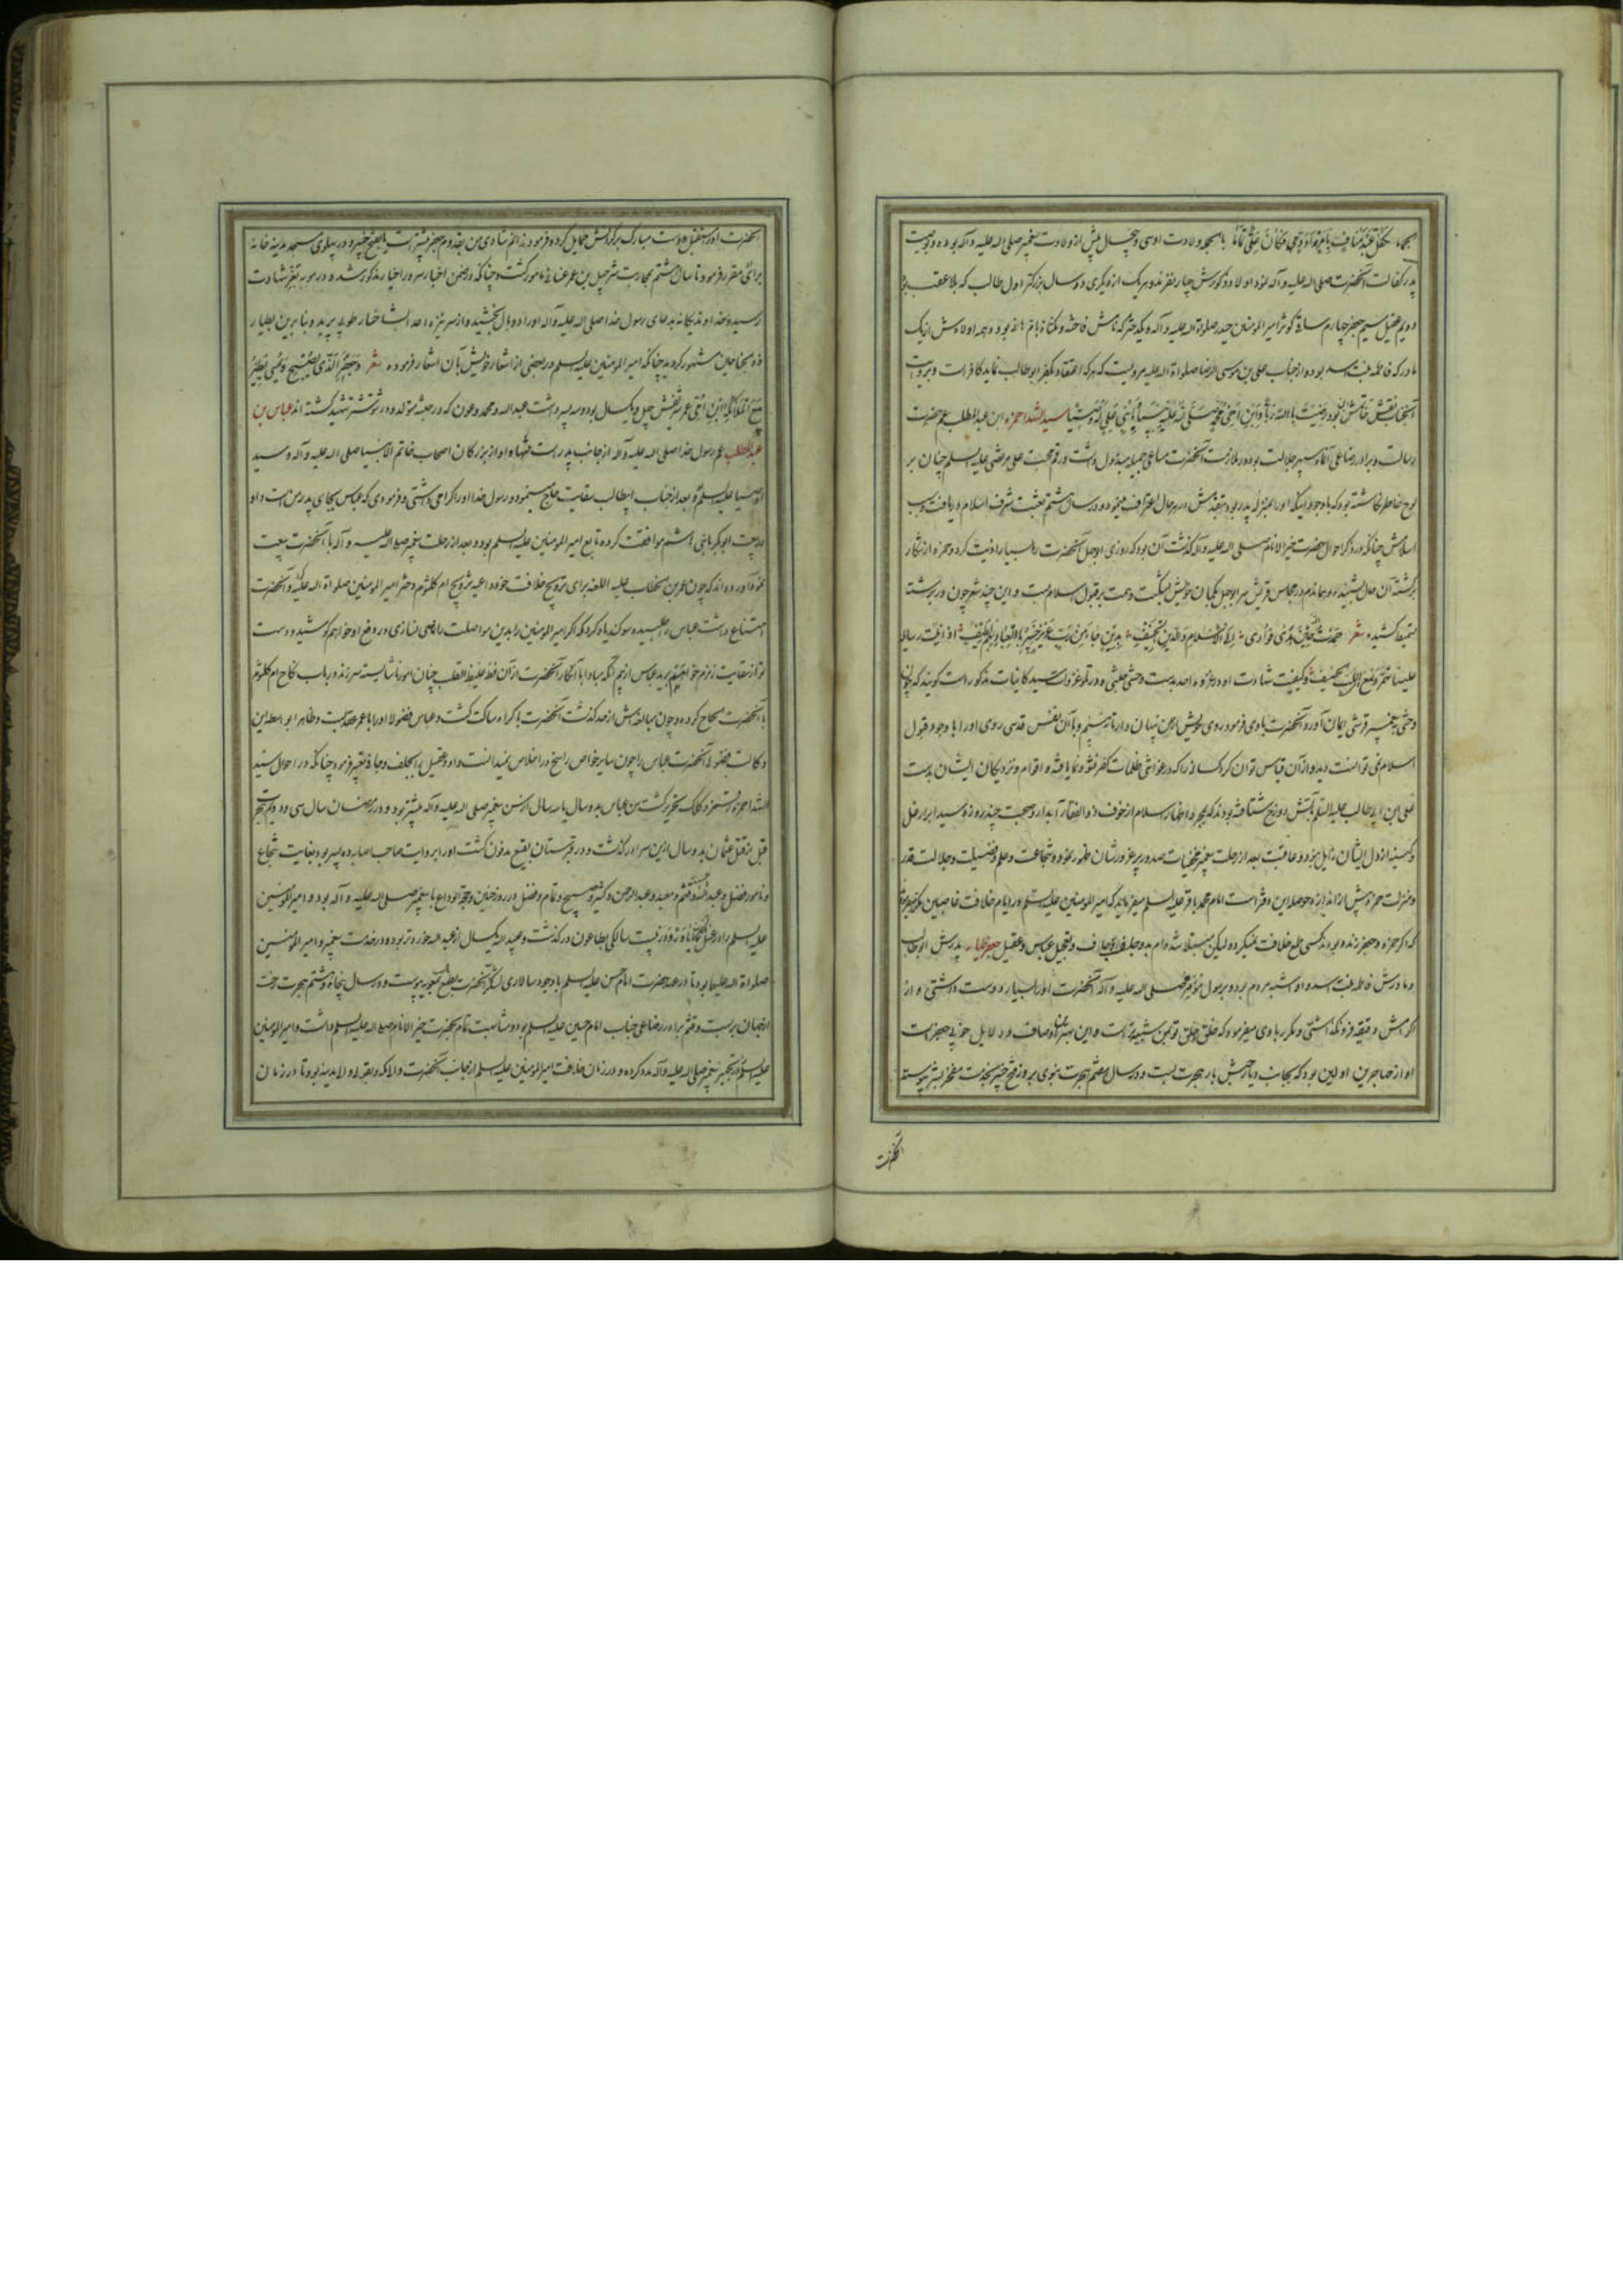 پدر کفالت آنحضرت صلی الله علیه و آله نمود اولاد ذکورش چهار نفرند و هر یک از دیگری ده سال بزرگتر اول طالب که بلا عقب بود
دویم عقیل سیم جعفر چهارم ساقی کوثر امیرالمومنین حیدر صلواة الله علیه و آله و یکدختر که نامش فاخته و مکناة بام هانی بود و همه اولادش از یک
مادر که فاطمه بنت اسد بوده و از جناب علی بن موسی الرضا صلواة الله علیه مرویست که هر که اعتقاد بکفر ابوطالب نماید کافر است و بروایت
آنجناب نقش خاتمش این بود رضیت بالله ربا و بابن اخی محمد نبیا و بابنی علی له وصیا سید الشهدا حمزه ابن عبدالمطلب عم حضرت
رسالت و برادر رضاعی آنماه سپهر جلالت بود و در ملازمت آنحضرت مساعی جمیله مبذول داشت و رقم محبت علی مرتضی علیه السلم چنان بر
لوح خاطر نگاشته بود که با وجود اینکه او را بمنزله پدر بود بتقدمش در هر حال اعتراف مینمود و در سال هشتم بعثت شرف اسلام دریافت و سبب
اسلامش چنانکه در ذکر احوال حضرت خیرالانام صلی الله علیه و آله گذشت آن بود که روزی ابوجهل آنحضرت را بسیار اذیت کرد و حمزه از شکار
برگشته آن حال بشنید و هماندم در مجلس قریش سر ابوجهل بکمان خویش بشکست و همت بر قبول اسلام بست و این چند شعر چون در بر رشته
وحشی به پیغمبر قرشی ایمان آورد و آنحضرت باوی فرمود روی خویش از من پنهان دار تا نه بینم و با آن نفس قدسی روی او را با وجود قبول
اسلام نمی توانست دید و از آن قیاس توان کرد کسانی را که در غواشی ظلمات کفر نشو و نما یافته و اقوام و نزدیکان ایشان بدست
علی ابن ابی طالب علیه السلم بآتش دوزخ شتافته بودند که بمجرد اظهار اسلام از خوف ذو الفقار آبدار و صحبت چند روزه سید ابرار غل
و کینه از دل ایشان زایل نبود و عاقبت بعد از رحلت پیغمبر مخفیات صدور پر غرورشان ظهور نمود و شجاعت و علم و فضیلت و جلالت قدر
و منزلت حمزه بیش از اندازه حوصله این دفتر است امام محمد باقر علیه السلم میفرماید که امیرالمومنین علیه السلم در ایام خلافت غاصبین مکرر میفرمود
که اگر حمزه و جعفر زنده بودند کسی طمع خلافت نمیکرد و لیکن مبتلا شده ام بدو جلیف جاف و بتجیل عباس و عقیل جعفر طیار پدرش ابوطالب
و مادرش فاطمه بنت اسد و او اشبه مردم بود و برسول موتمن صلی الله علیه و آله آنحضرت او را بسیار دوست داشتی و از
اکرامش دقیقه فرو نگذاشتی و مکرر باوی میفرمود که خلق و خلق تو بمن شبیه است و این بهترین اوصاف و دلایل خوبی جعفر است
او از مهاجرین اولین بود که بجانب دیار حبش بار هجرت بست و در سال هفتم هجرت نبوی بروز فتح خیبر بخدمت مفخر البشر پیوسته
آنحضرت
آنحضرت او را استقبال و دست مبارک بر گردنش حمایل کرده فرمود ندانم شادی من بقدوم جعفر بیشتر است یا بفتح خیبر و در پهلوی مسجد مدینه خانه
برای او مقرر فرمود تا سال هشتم بمحاربت شرحیل بن عمر غسانی مامور گشت و چنانکه در ضمن اخبار سرور اخیار مذکور شد در موته بفیض شهادت
رسید و خداوند یگانه بدعای رسول خدا صلی الله علیه و آله او را دو بال بخشید و از سر نیزه اعدا بشاخسار طوبی پرید و بنا برین بطیار
ذو جناحین مشهور گردید چنانکه امیرالمومنین علیه السلم در بعضی از اشعار خویش بآن اشعار فرموده شعر و جعفر الذی یضحی و یمسی یطیر
مع الملائکه ابن امی عمر شریفش چهل و یکسال بود و سه پسر داشت عبدالله و محمد و عون که در حبشه متولد و در شوشتر شهید گشته اند عباس بن
عبدالمطلب عم رسول خدا صلی الله علیه و آله از جانب پدر است تنها و او از بزرگان اصحاب خاتم الانبیا صلی الله علیه و آله و سید
اوصیا علیه السلم بود بعد از جناب ابیطالب سقایت حاج مینمود و رسول خدا او را گرامی داشتی و فرمودی که عباس بجای پدر من است و او
در بیعت ابوبکر با بنی هاشم موافقت کرده تابع امیرالمومنین علیه السلم بود و بعد از رحلت پیغمبر صلی الله علیه و آله با آنحضرت بیعت
نمود آورده اند که چون عمر بن خطاب علیه اللعنه برای ترویج خلافت خود داعیه تزویج ام کلثوم دختر امیرالمومنین صلواة الله علیه کرد و آنحضرت
امتناع داشت عباس را طلبیده سوگند یاد کرد که اگر امیرالمومنین را بدین مواصلت راضی نسازی در دفع او خواهم کوشید و دست
تو از سقایت زمزم خواهم برید عباس از بیم آنکه مبادا با انکار آنحضرت از آن فظ غلیظ القلب چنان امور ناشایسته سر زند در باب نکاح ام کلثوم
با آنحضرت الحاح کرده و چون مبالغه اش از حد گذشت آنحضرت باکراه ساکت گشت و عباس فضولا او را با عمر عقد بست و ظاهرا بواسطه این
وکالت فضولی آنحضرت عباس را چون سایر خواص راسخ در اخلاص نمیدانست و او و عقیل را بجلف و جاف تعبیر فرمود چنانکه در احوال سید
الشهدا حمزه رقمزد کلک تحریر گشت سن عباس بدو سال یا سه سال از سن پیغمبر صلی الله علیه و آله بیشتر بود و در رمضان سال سی و دویم هجرت
قبل از قتل عثمان بدو سال ازین سرا در گذشت و در قبرستان بقیع مدفون گشت او را بروایت صاحب اصابه ده پسر بود بغایت شجاع
و نامور فضل و عبدالله و قثم و معبد و عبدالرحمن و کثیر و صبیح و تمام و فضل در روز حنین و حجة الوداع با پیغمبر صلی الله علیه و آله بود و با امیرالمومنین
صلواة الله علیهما بود تا در عهد حضرت امام حسن علیه السلم با وجود سالاری لشکر آنحضرت بطمع بمعویه پیوست و در سال پنجاه و هشتم هجرت رخت
از جهان بربست و قثم برادر رضاعی جناب امام حسین علیه السلم بود و شباهت تام بحضرت خیرالانام صلی الله علیه و آله داشت و امیرالمومنین
علیه السلم را در تجهیز پیغمبر صلی الله علیه و آله مدد کرده و در زمان خلافت امیرالمومنین علیه السلم از جانب آنحضرت والی مکه و بقولی والی مدینه بود تا در زمان